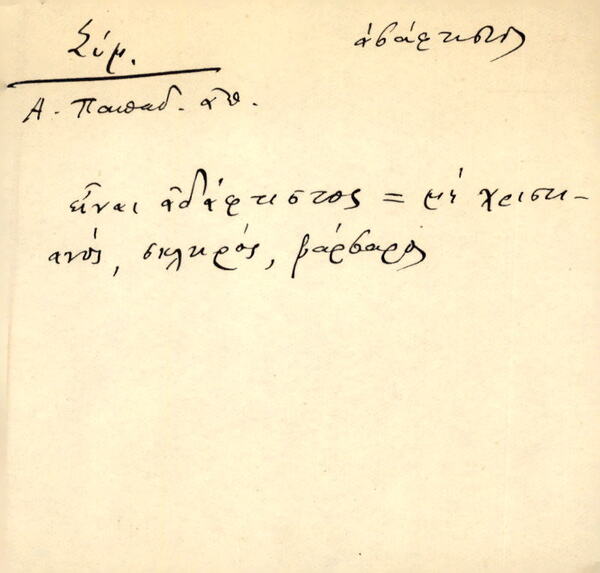 Σύμ.
ἀβάφτιστος
Α. Παπαδ. ἀθ.
εἶναι ἀβάφτιστος = μὴ χριστι-
ανός, σκληρός, βάρβαρος